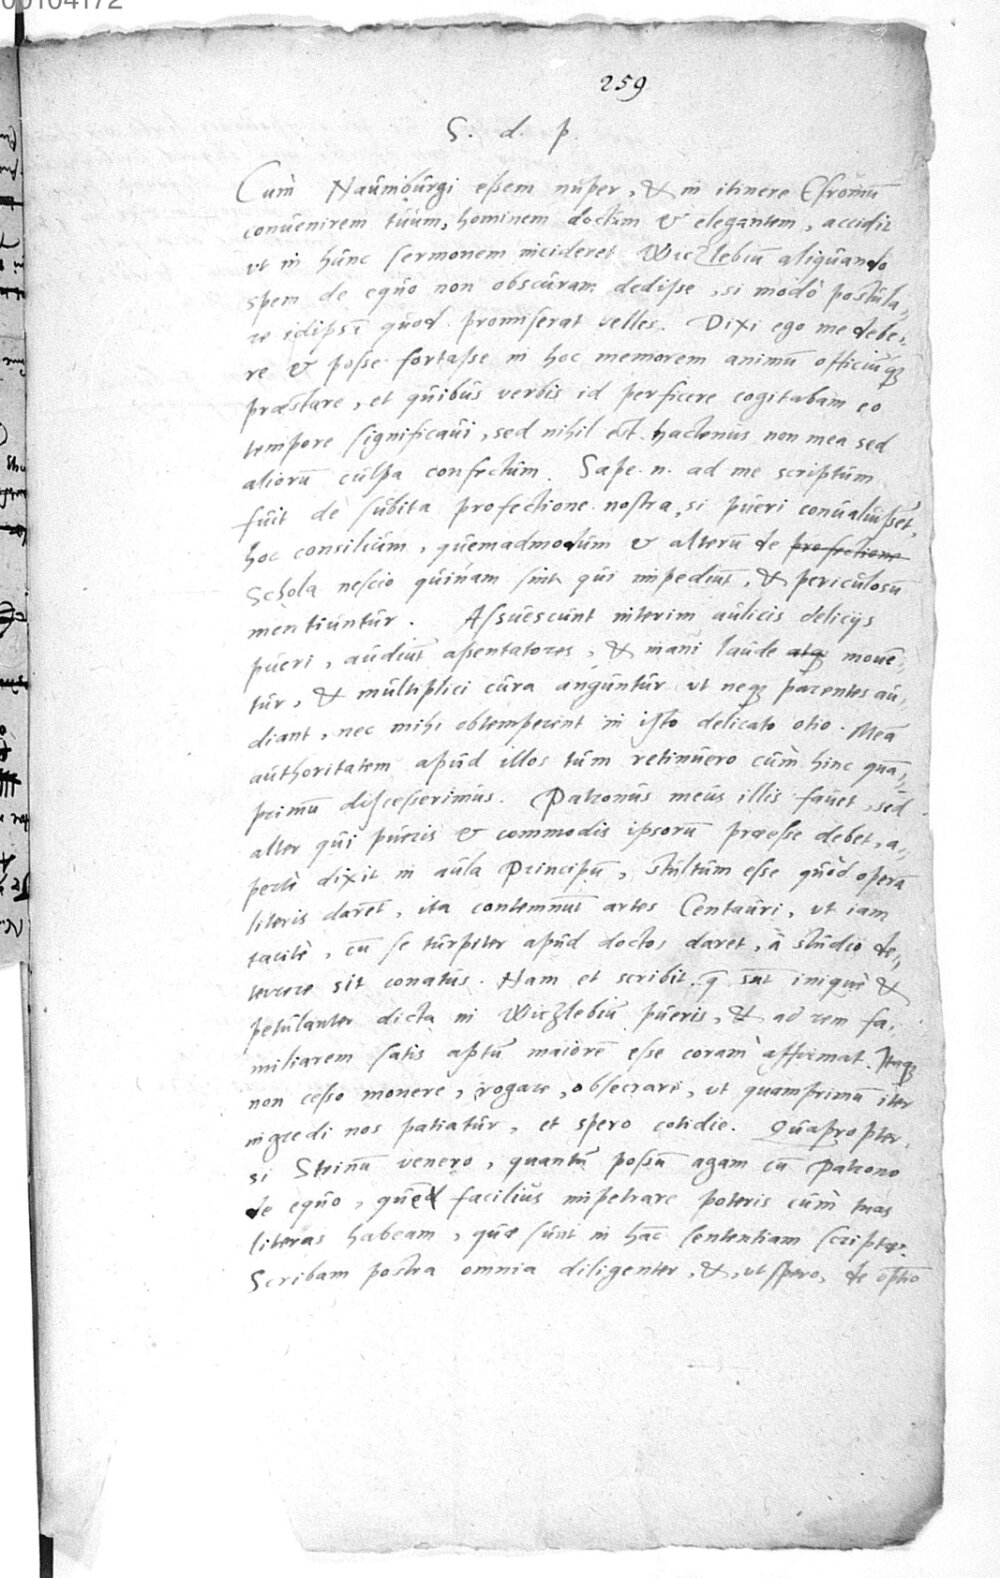 00104172
259
S. d. p.
Cum Naumburgi essem nuper, & in itinere Esromū
conuenirem tuum, hominem doctum & elegantem, accidit
vt in hunc sermonem incideret Wiczlebiū aliquando
spem de equo non obscuram dedisse, si modò postula-
re idipsū quod promiserat velles. Dixi ego me debe-
re & posse fortasse in hoc memorem animū officiūq3
præstare, et quibus verbis id perficere cogitabam eo
tempore significaui, sed nihil est hactenus non mea sed
aliorū culpa confectum. Sæpe .n. ad me scriptum
fuit de subita profectione nostra, si pueri conualuissēt,
hoc consilium, quemadmodum & alterū de profectione
Schola nescio quinam sint qui impediūt, & periculosū
mentiuntur. Assuescunt interim aulicis delicijs
pueri, audiūt assentatores, & inani laude atq3 mouē-
tur, & multiplici cura anguntur vt neq3 parentes au-
diant, nec mihi obtemperent in isto delicato otio. Meā
authoritatem apud illos tum retinuero cùm hinc quā-
primū discesserimus. Patronus meus illis fauet, sed
alter qui pueris & commodis ipsorū præesse debet, a-
pertè dixit in aula Principū, stultum esse quòd operā
literis darēt, ita contemnūt artes Centauri, vt iam
tacitè, cū se turpiter apud doctos daret, à studio de-
terrere sit conatus. Nam et scribit q̄ sūt iniquè &
petulanter dicta in Wiczlebiū pueris, & ad rem fa-
miliarem satis aptū maiorē esse coram affirmat. Itaq3
non cesso monere, rogare, obsecrari, vt quamprimū iter
ingredi nos patiatur, et spero cotidie. Quapropter
si Steinū venero, quantū possū agam cū Patrono
de equo, quod facilius impetrare poteris cùm tuas
literas habeam, quæ sunt in hāc sententiam scriptæ.
Scribam postea omnia diligenter, &, vt spero, de optīo